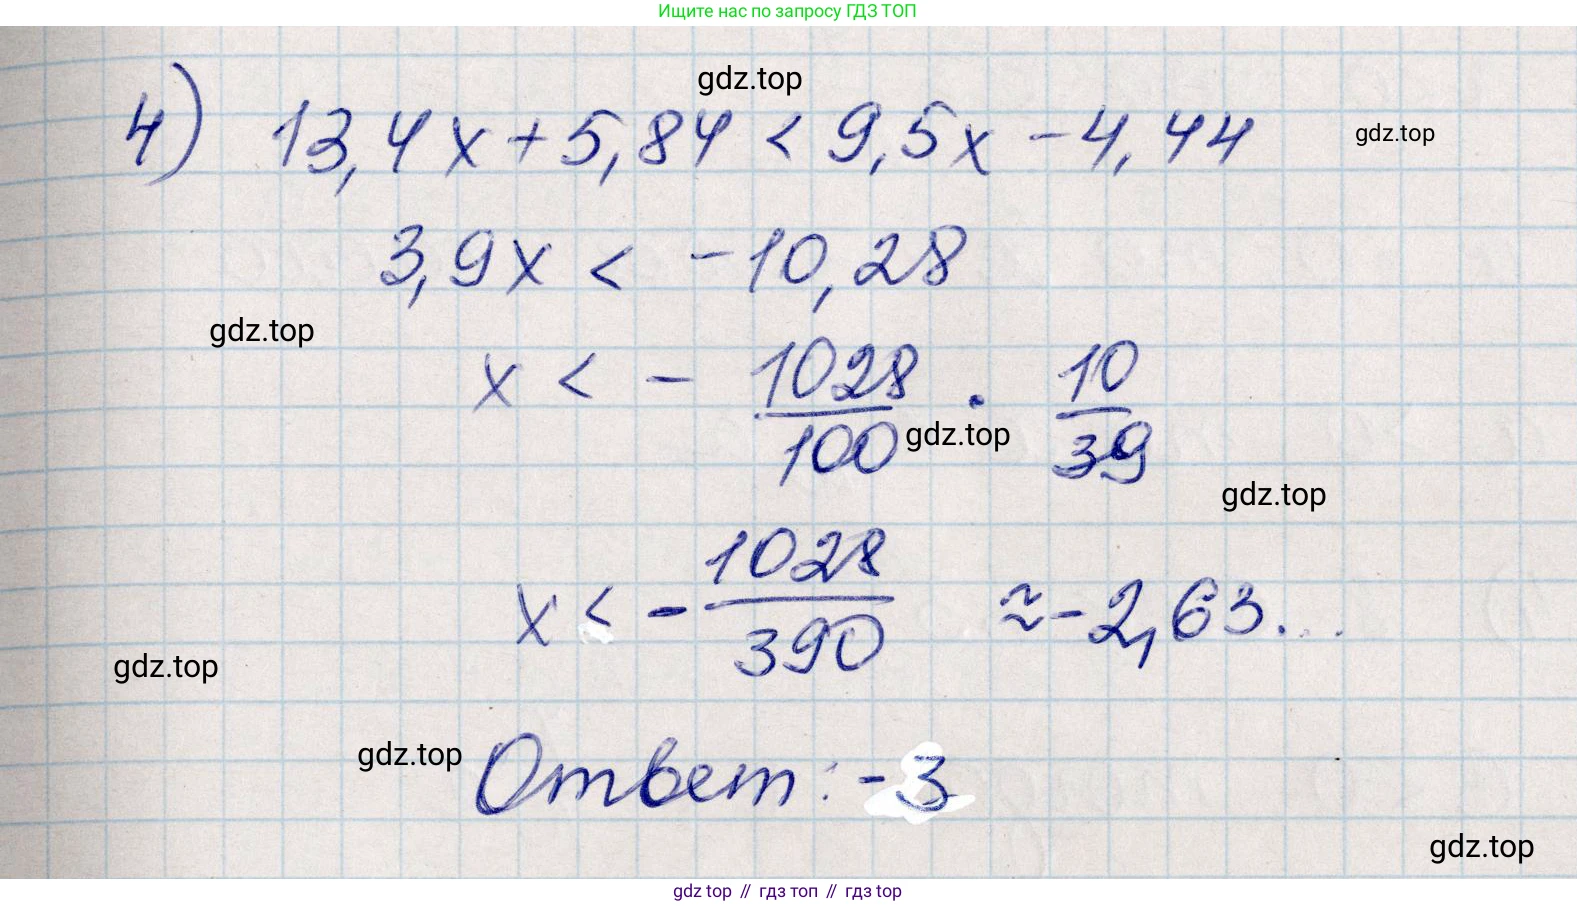 Ищите нас по запросу ГДЗ ТОП
gdz.top
4) 13,4x + 5,84 < 9,5x - 4,44
gdz.top
3,9x < -10,28
gdz.top
x < - 1028/100 · 10/39
gdz.top
gdz.top
x < - 1028/390 ≈ -2,63...
gdz.top
gdz.top
Ответ: -3
gdz.top
gdz top // гдз топ // гдз top